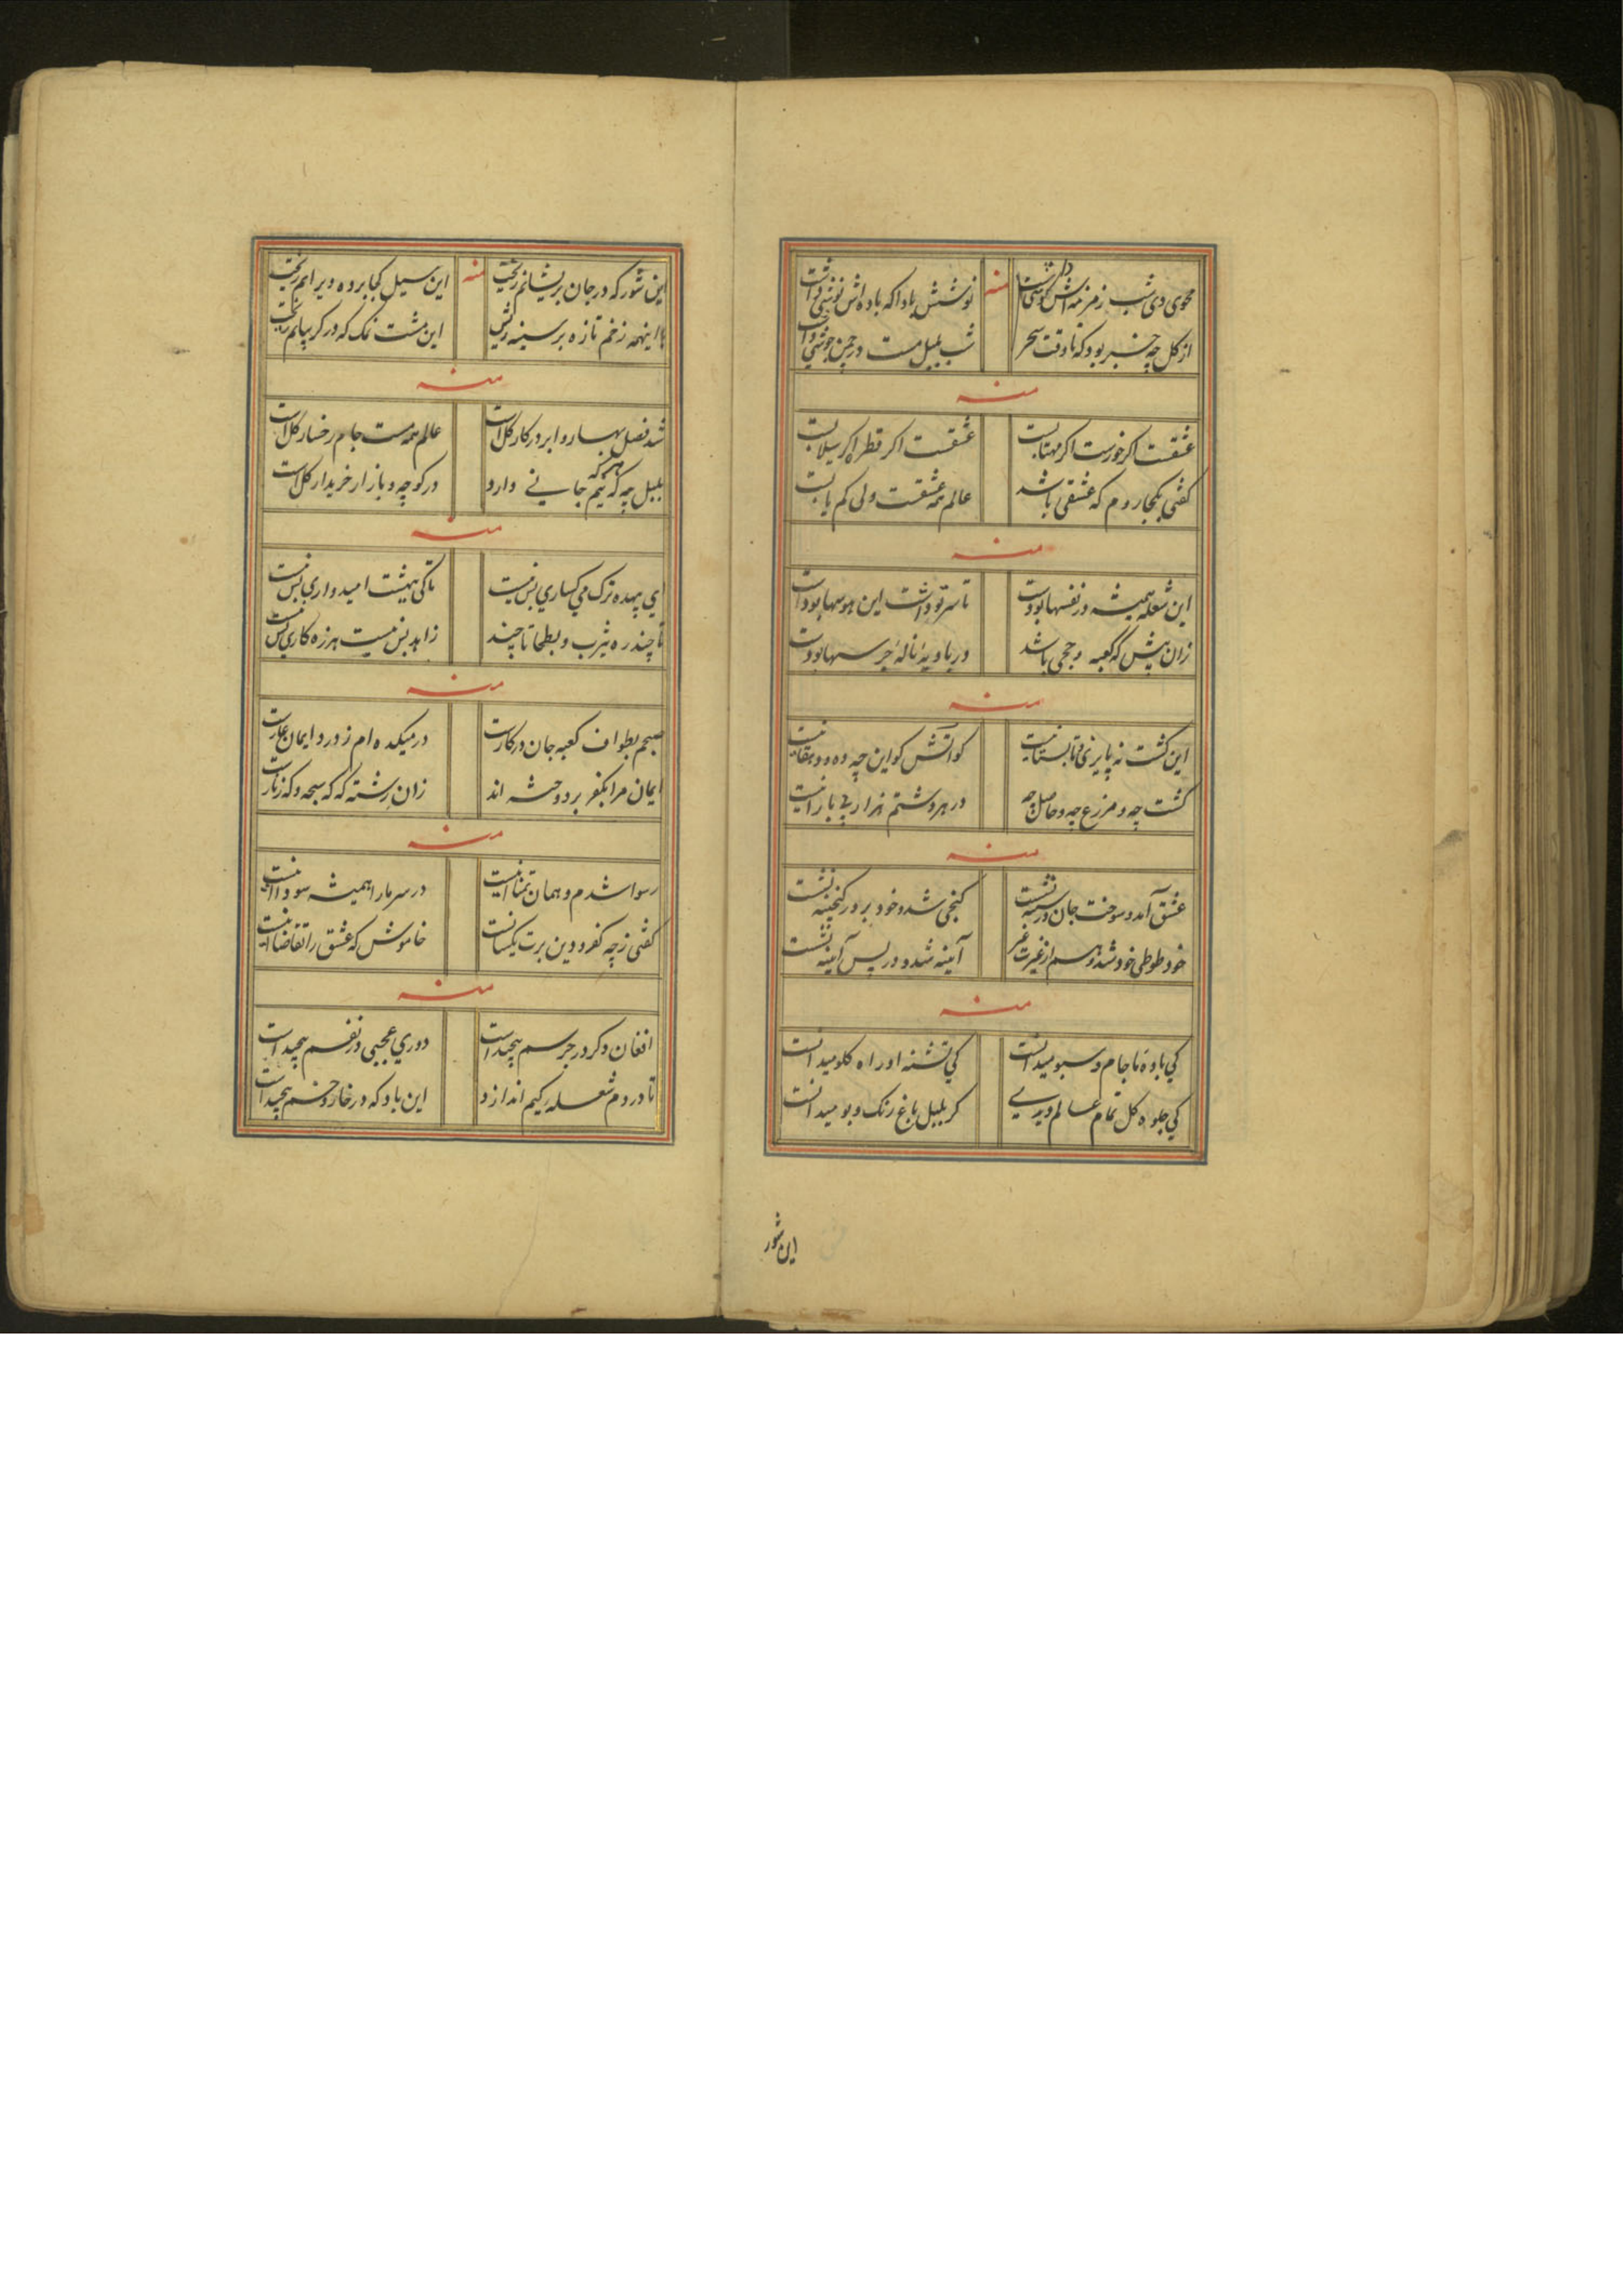 محوی دی شب زمزمه اش کوشی داشت منه نوشش بادا که باده اش نوشی داشت
از کل چه خبر بود که تا وقت سحر شب بلبل مست در چمن جوشی داشت
منه
عشقست اکر خورست اکر مهتابست عشقست اکر قطره اکر سیلابست
کفتی بکجا روم که عشقی باشد عالم همه عشقست ولی کم یابست
منه
این شعله همیشه در نفسها بودست تا سر تو داشت این هوسها بودست
زان پیش که کعبه و حجی باشد در بادیه ناله جرسها بودست
منه
این کشت نه پاییزی و تابستانیست کو آتش کو این چه ده و دهقانیست
کشت چه و مزرع چه و حاصل چه در هر وشتم هزار بی بارانیست
منه
عشق آمد و سوخت جان و در سینه نشست کنجی شد و خود بر در کنجینه نشست
خود طوطی خود شد و هم از غیرت غیر آیینه شد و در پس آیینه نشست
منه
کی باده ما جام و سبو میدانست کی تشنه او راه کلو میدانست
کی جلوه کل تمام عالم دیدی کر بلبل باغ رنک و بو میدانست
این شور
این شور که در جان پریشانم ریخت منه این سیل کجا برده ویرانم ریخت
با اینهمه زخم تازه بر سینه ریش این مشت نمک که در کریبانم ریخت
منه
شد فصل بهار و ابر در کار کلست عالم همه مست جام رخسار کلست
بلبل چه که هر که نیم جانی دارد در کوچه و بازار خریدار کلست
منه
ای بیهده ترک می کساری بس نیست تا کی ببهشت امیدواری بس نیست
تا چند ره یثرب و بطحا تا چند زاهد بس نیست هرزه کاری بس نیست
منه
صبحم بطواف کعبه جان در کارست در میکده ام ز درد ایمان عارست
ایمان مرا بکفر بر دوخته اند زان رشته که که سبحه و که زنارست
منه
رسوا شدم و همان تمنا اینست در سر ما را همیشه سودا اینست
کفتی ز چه کفر و دین برت یکسانست خاموش که عشق را تقاضا اینست
منه
افغان دکر در جرسم پیچیدست دوری عجبی در نفسم پیچیدست
تا در دم شعله رکیم اندازد این باد که در خار و خسم پیچیدست